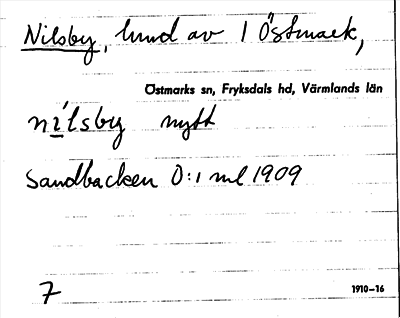 Nilsby, hmd av 1 Östmark,
Östmarks sn, Fryksdals hd, Värmlands län
nílsby nytt
Sandbacken O:1 ml 1909
7
1910-16